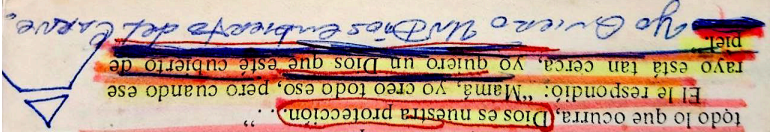 todo lo que ocurra, Dios es nuestra protección. . ."
El le respondió: "Mamá, yo creo todo eso, pero cuando ese
rayo está tan cerca, yo quiero un Dios que esté cubierto de
piel"
Yo Quiero Un Dios Cubierto del Carne.